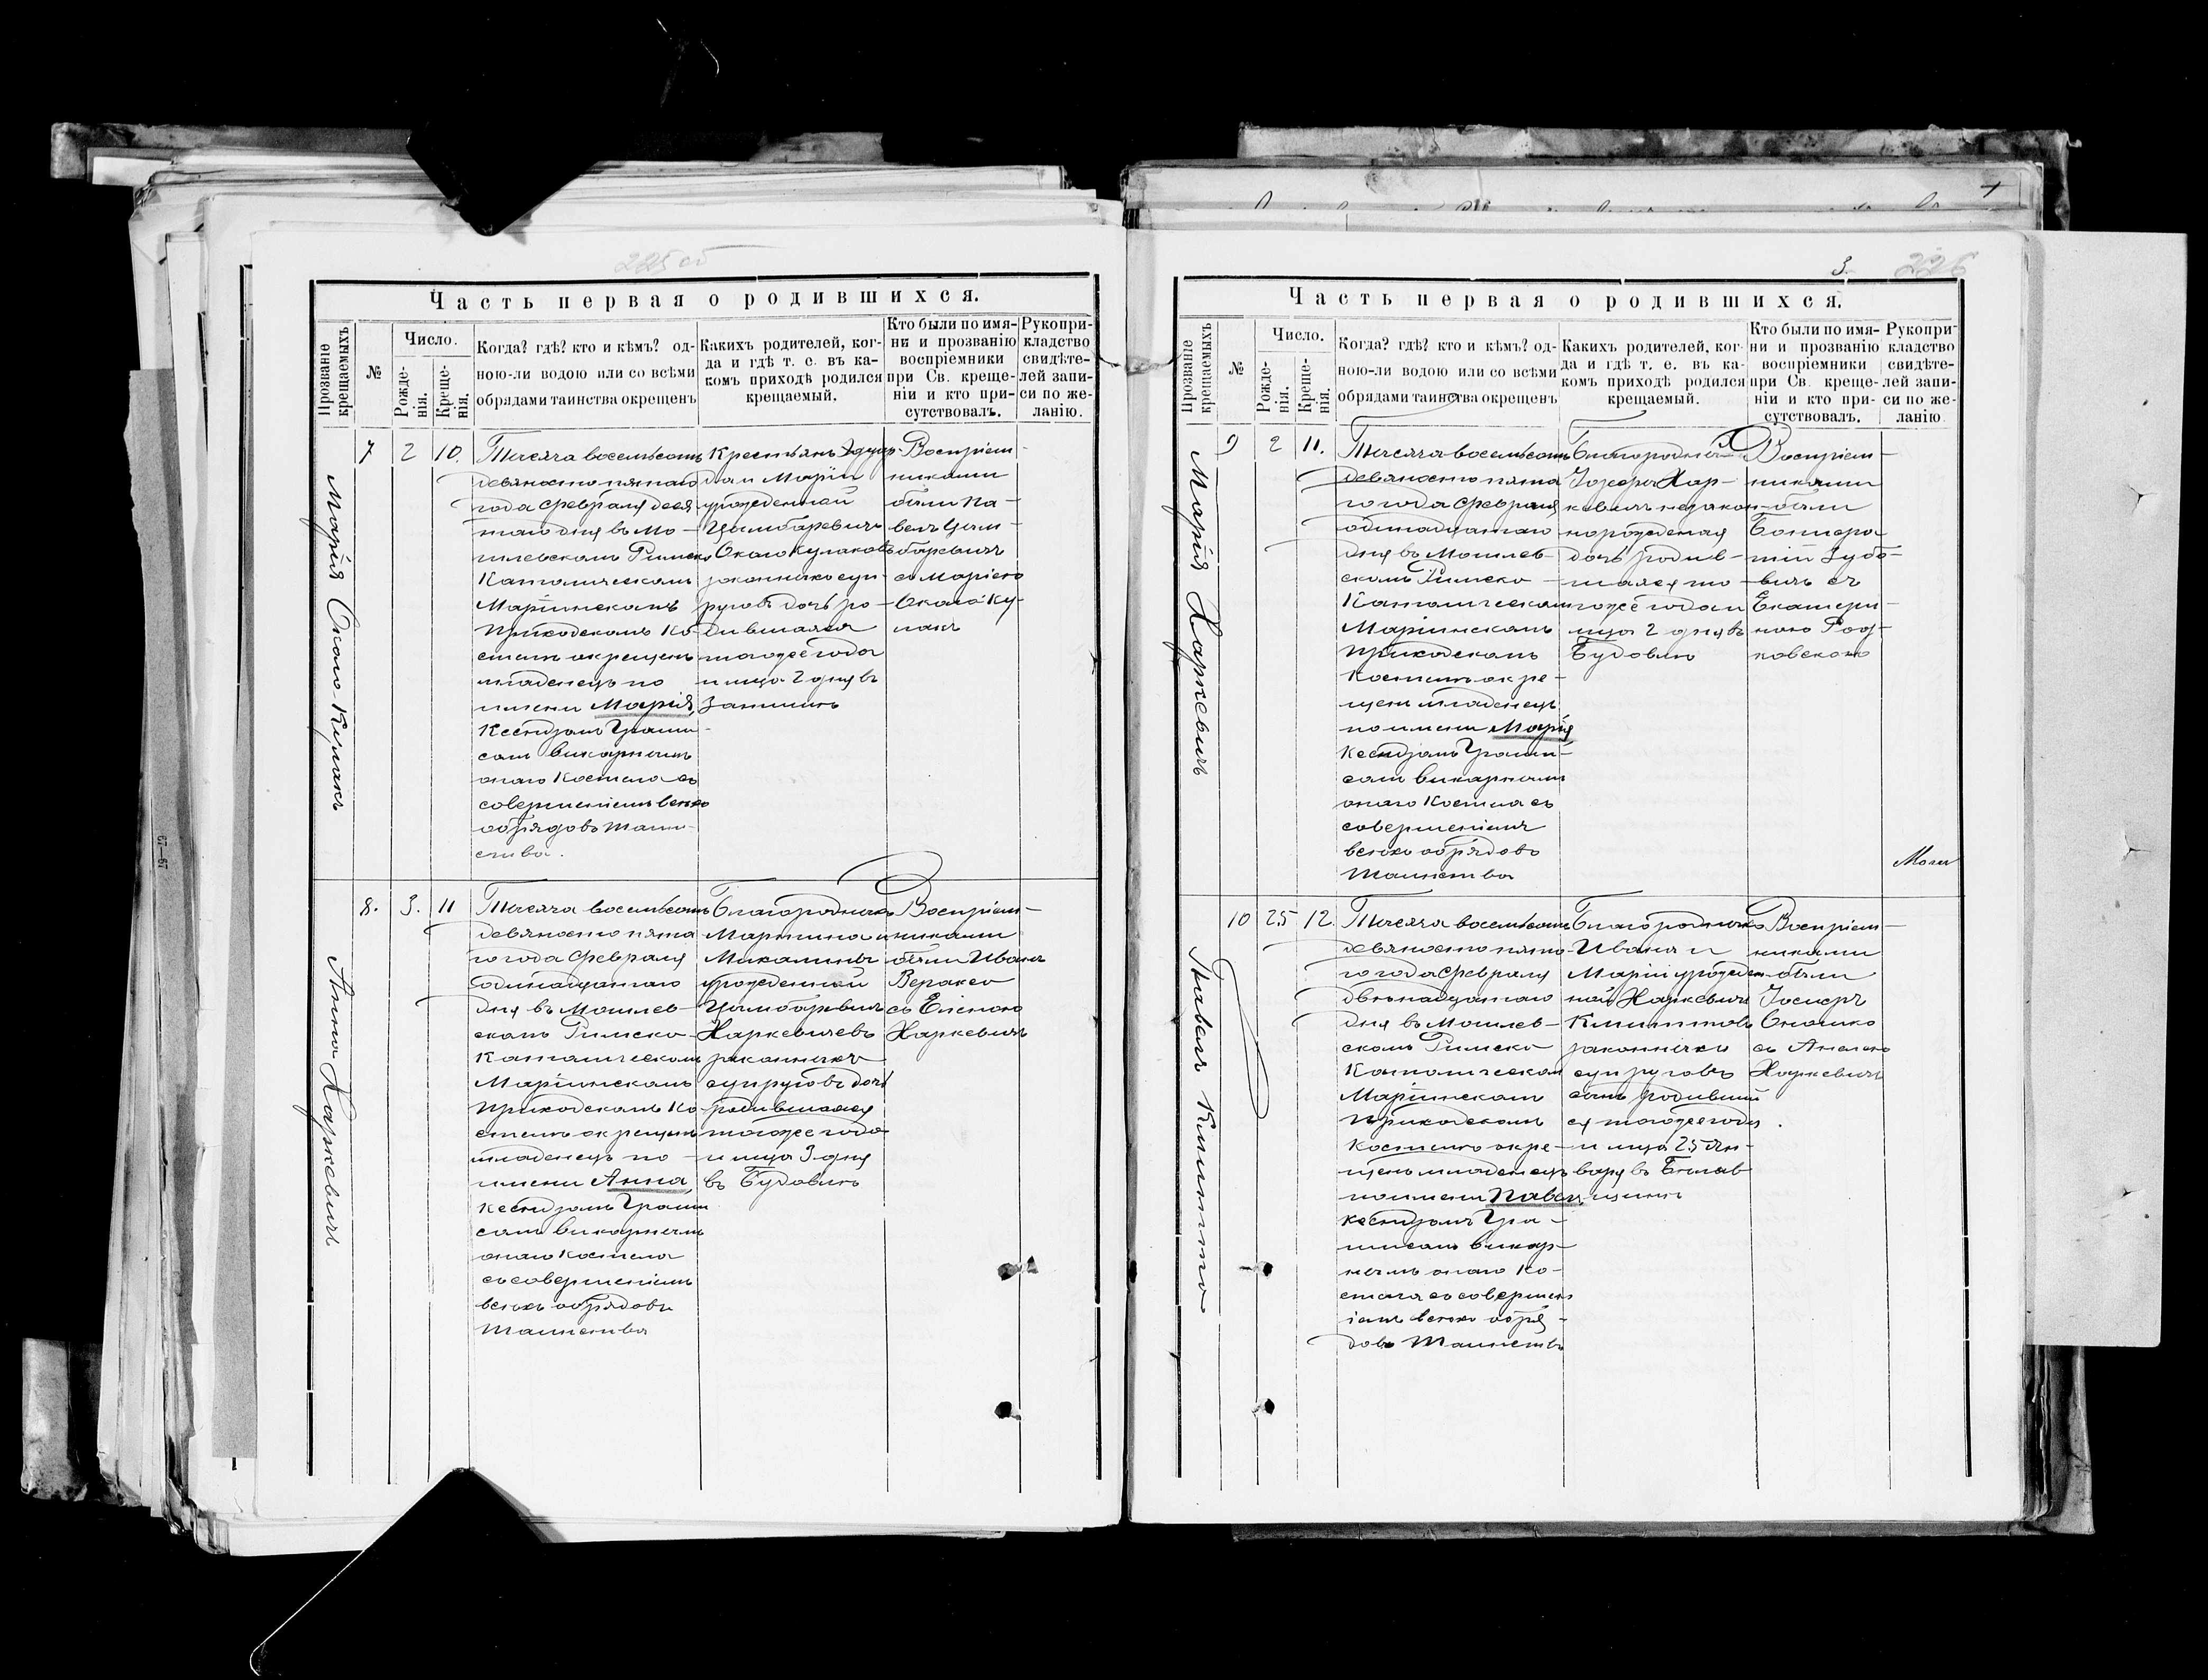 225 об
Часть первая о родившихся.
Прозваніе крещаемыхъ
№
Число.
Рожде-
нія.
Креще-
нія.
Когда? гдѣ? кто и кѣмъ? од-
ною-ли водою или со всѣми
обрядами таинства окрещенъ
Какихъ родителей, ког-
да и гдѣ т. е. въ ка-
комъ приходѣ родился
крещаемый.
Кто были по имя-
ни и прозванію
воспріемники
при Св. креще-
ніи и кто при-
сутствовалъ.
Рукопри-
кладство
свидѣте-
лей запи-
си по же-
ланію.
Марія Около-Кулакъ
7
2
10.
Тысяча восемьсотъ
девяносто пятаго
года Февраля деся
таго дня въ Мо-
гилевскомъ Римско
Католическомъ
Маріинскомъ
Приходскомъ Ко-
стелѣ окрещенъ
младенецъ по
имени Марія,
Ксендзомъ Грами-
сомъ викарнымъ
онаго Костела съ
совершеніемъ всѣхъ
обрядовъ таин-
ства.
Крестьянъ Эдуар-
да и Маріи
урожденной
Цимбаревичъ
Около Кулаковъ
законныхъ суп-
руговъ дочь ро-
дившаяся
тогоже года
и мца 2 дня въ
Воспріем-
никами
были Па-
велъ Цим-
баревичъ
съ Маріею
Около Ку-
лакъ
Анна Харкевичъ
8.
3.
11
Тысяча восемьсотъ
девяносто пята
го года Февраля
одинадцатаго
дня въ Могилев-
скомъ Римско-
Католическомъ
Маріинскомъ
Приходскомъ Ко-
стелѣ окрещенъ
младенецъ по
имени Анна,
Ксендзомъ Грами
сомъ викарнымъ
онаго Костела
съ совершеніемъ
всѣхъ обрядовъ
Таинства
Благородныхъ
Мартина и
Михалины
урожденной
Цимбаревичъ
Харкевичевъ
законныхъ
супруговъ дочь
родившаяся
тогоже года
и мца 3 дня
въ Будовлѣ
Воспріем-
никами
были Иванъ
Верахсо
съ Еленою
Харкевичъ
3.
226
Часть первая о родившихся.
Прозваніе крещаемыхъ
№
Число.
Рожде-
нія.
Креще-
нія.
Когда? гдѣ? кто и кѣмъ? од-
ною-ли водою или со всѣми
обрядами таинства окрещенъ
Какихъ родителей, ког-
да и гдѣ т. е. въ ка-
комъ приходѣ родился
крещаемый.
Кто были по имя-
ни и прозванію
воспріемники
при Св. креще-
ніи и кто при-
сутствовалъ.
Рукопри-
кладство
свидѣте-
лей запи-
си по же-
ланію
Марія Харкевичъ
9
2
11.
Тысяча восемьсотъ
девяносто пята
го года Февраля
одинадцатаго
дня въ Могилев-
скомъ Римско-
Католическомъ
Маріинскомъ
Приходскомъ
Костелѣ окре-
щенъ младенецъ
по имени Марія
Ксендзомъ Грами-
сомъ викарнымъ
онаго Костела съ
совершеніемъ
всѣхъ обрядовъ
Таинства
Благородной
Юзефы Хар-
кевичъ незакон-
норожденная
дочь родив-
шаяся то-
гоже года и
мца 2 дня въ
Будовлѣ
Воспріем-
никами
были
Зубо-
вичъ съ
Екатери-
ною
Павелъ Климпто
10
25
12.
Тысяча восемьсотъ
девяносто пята-
го года Февраля
двѣнадцатаго
дня въ Могилев-
скомъ Римско-
Католическомъ
Маріинскомъ
Приходскомъ
Костелѣ окре-
щенъ младенецъ
по имени Павелъ,
ксендзомъ Гра-
мисомъ викар-
нымъ онаго Ко-
стела съ совершен
іемъ всѣхъ обря-
довъ Таинства
Благородныхъ
Ивана и
Маріи урожден-
ной Харкевичъ
законныхъ
супруговъ
сынъ родивший
ся тогоже года
и мца 25 Ян-
варя въ
Воспріем-
никами
были
Іосифъ
съ Анелею
Харкевичъ